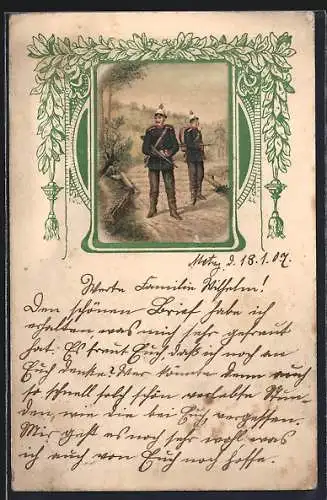 Metz d. 18.1.07.
Werte Familie Wilhelm!
Den schönen Brief habe ich
erhalten was mich sehr gefreut
hat. Es freut Euch, daß ich noch an
Euch denke? Wer könnte denn auch
so schnell solch schön verlebte Stun-
den, wie die bei Euch vergessen.
Mir geht es noch sehr wohl was
ich auch von Euch noch hoffe.